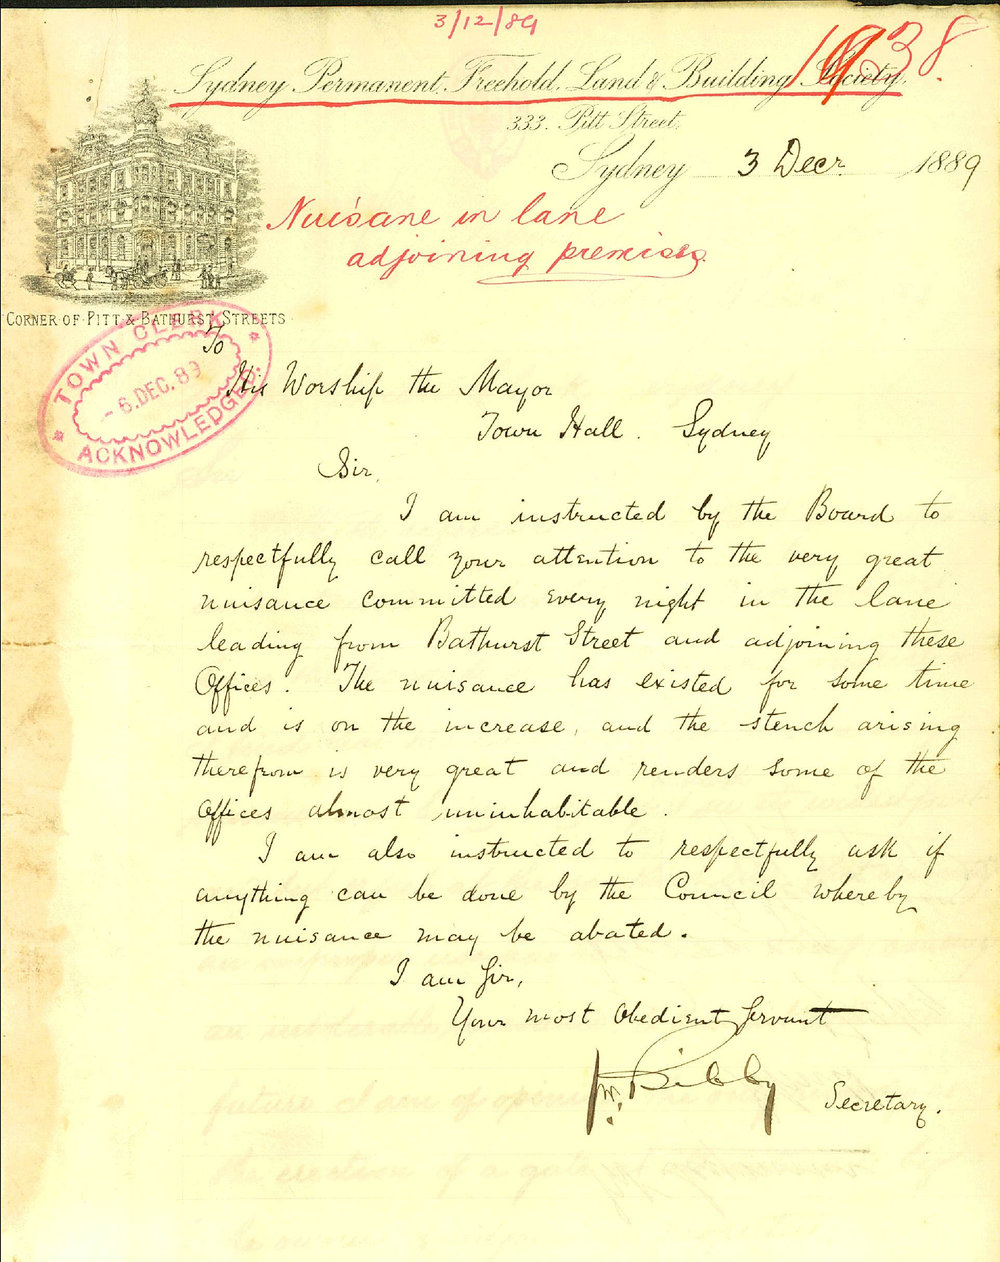 3/12/89
1938.
Sydney Permanent, Freehold, Land & Building Society.
333. Pitt Street,
Sydney 3 Decr 1889
Nuisane in lane
adjoining premises
CORNER OF PITT & BATHURST STREETS
TOWN CLERK
- 6. DEC. 89
ACKNOWLEDGED.
To
His Worship the Mayor
Town Hall. Sydney
Sir,
I am instructed by the Board to
respectfully call your attention to the very great
nuisance committed every night in the lane
leading from Bathurst Street and adjoining these
Offices. The nuisance has existed for some time
and is on the increase, and the stench arising
therefrom is very great and renders some of the
Offices almost uninhabitable.
I am also instructed to respectfully ask if
anything can be done by the Council whereby
the nuisance may be abated.
I am Sir,
Your most Obedient Servant
Bibby
Secretary.